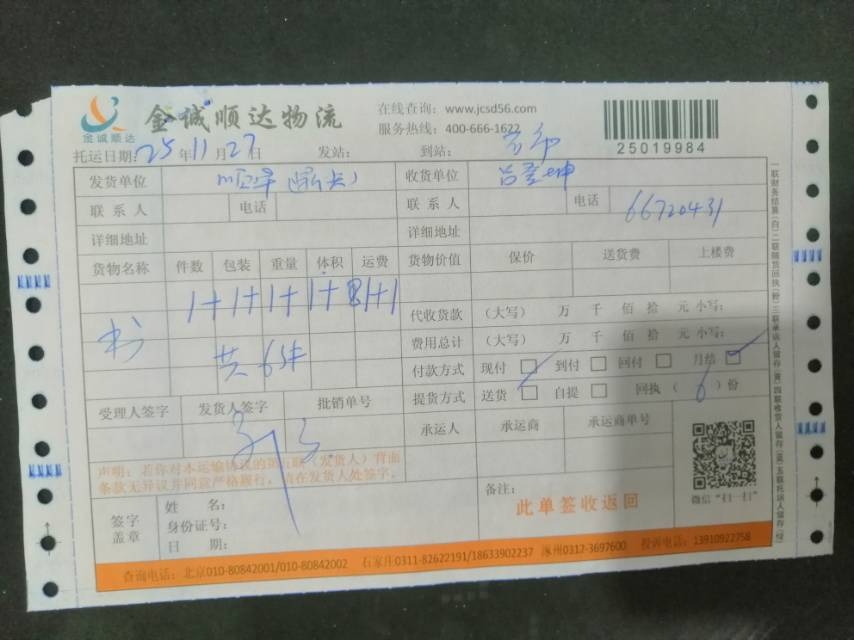 金诚顺达
金诚顺达物流
在线查询：www.jcsd56.com
服务热线：400-666-1622
25019984
托运日期: 25 年 11 月 27 日 发站： 到站：
发货单位 收货单位
联系人 电话 联系人 电话 66720431
详细地址 详细地址
货物名称 件数 包装 重量 体积 运费 货物价值 保价 送货费 上楼费
1+1+1+1+ 1+1
代收货款 （大写） 万 千 佰 拾 元 小写：
书 共6件 费用总计 （大写） 万 千 佰 拾 元 小写：
付款方式 现付 到付 回付 月结
提货方式 送货 自提 回执（ 6 ）份
受理人签字 发货人签字 批销单号
承运人 承运商 承运商单号
声明：若你对本运输协议的第五联（发货人）背面
条款无异议并同意严格履行，请在发货人处签字。
微信“扫一扫”
备注：
此单签收返回
签字
盖章
姓 名：
身份证号：
日 期：
查询电话：北京010-80842001/010-80842002 石家庄0311-82622191/18633902237 涿州0312-3697600 投诉电话：13910922758